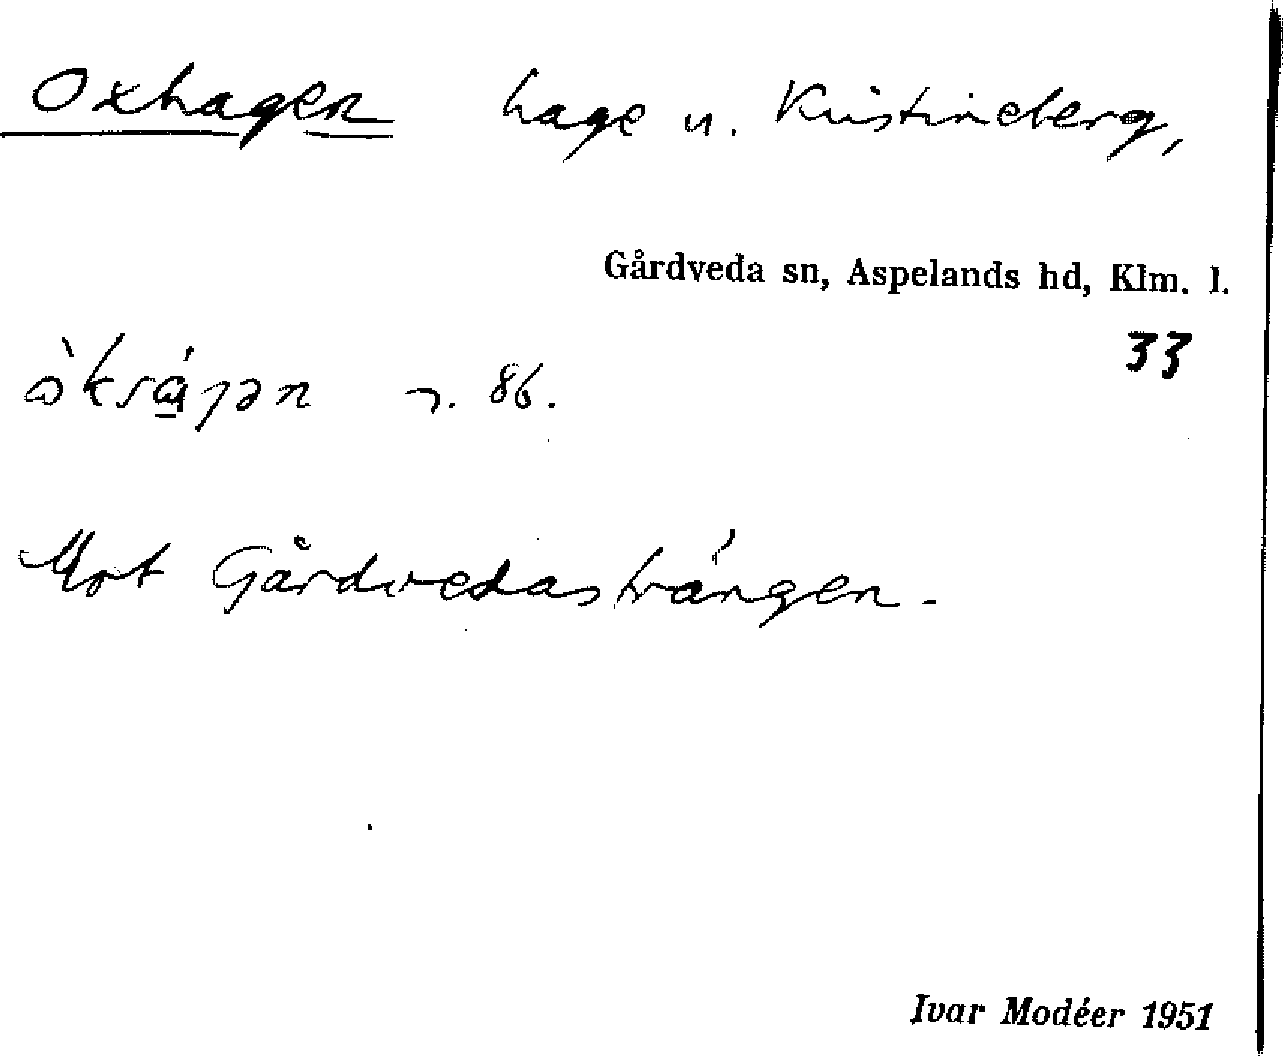 Oxhagen hage u. Kristineberg,
Gårdveda sn, Aspelands hd, Klm. l.
33
86.
Mot Gårdvedasträngen.
Ivar Modéer 1951